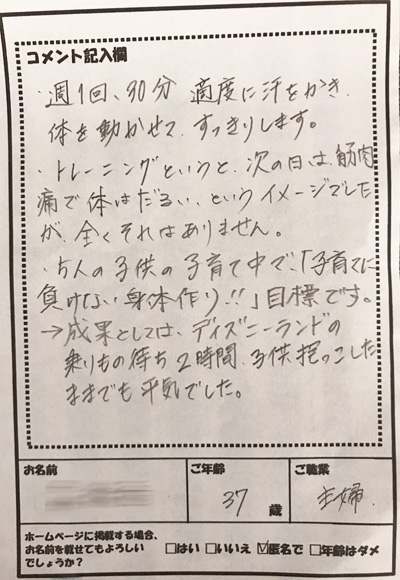 コメント記入欄
・週1回、30分 適度に汗をかき、
体を動かせて、すっきりします。
・トレーニングというと、次の日は、筋肉
痛で体はだるい、というイメージでした
が、全くそれはありません。
・5人の子供の子育て中で、「子育てに
負けない身体作り!!」目標です。
→成果としては、ディズニーランドの
乗りもの待ち2時間、子供抱っこした
ままでも平気でした。
お名前 ご年齢 ご職業
37歳 主婦
ホームページに掲載する場合、
お名前を載せてもよろしい
でしょうか?
□はい □いいえ ☑匿名で □年齢はダメ